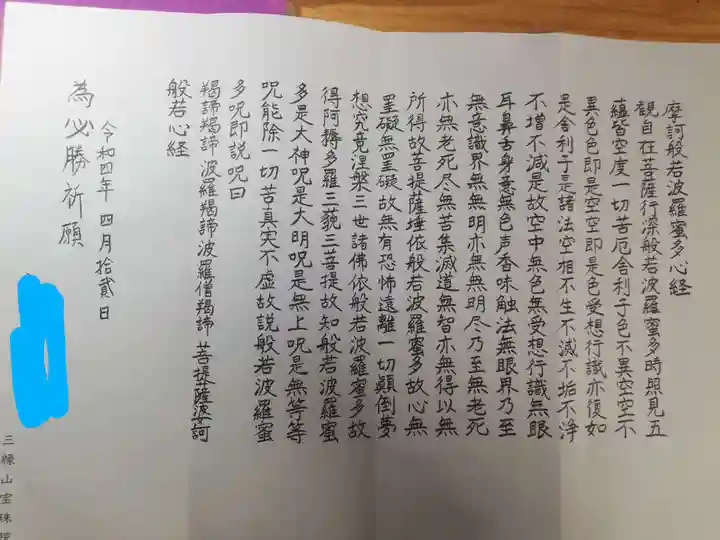 摩訶般若波羅蜜多心経
観自在菩薩行深般若波羅蜜多時照見五
蘊皆空度一切苦厄舎利子色不異空空不
異色色即是空空即是色受想行識亦復如
是舎利子是諸法空相不生不滅不垢不浄
不増不減是故空中無色無受想行識無眼
耳鼻舌身意無色声香味触法無眼界乃至
無意識界無無明亦無無明尽乃至無老死
亦無老死尽無苦集滅道無智亦無得以無
所得故菩提薩埵依般若波羅蜜多故心無
罣礙無罣礙故無有恐怖遠離一切顛倒夢
想究竟涅槃三世諸佛依般若波羅蜜多故
得阿耨多羅三藐三菩提故知般若波羅蜜
多是大神呪是大明呪是無上呪是無等等
呪能除一切苦真実不虚故説般若波羅蜜
多呪即説呪曰
羯諦羯諦 波羅羯諦 波羅僧羯諦 菩提薩婆訶
般若心経
令和四年 四月 拾貳日
為必勝祈願
三縁山宝珠院